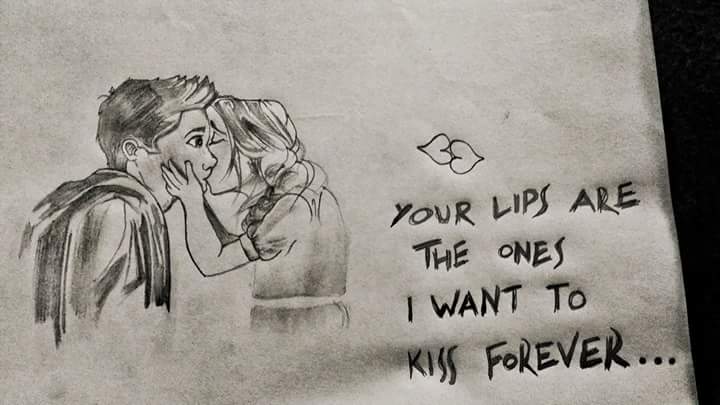 YOUR LIPS ARE
THE ONES
I WANT TO
KISS FOREVER...